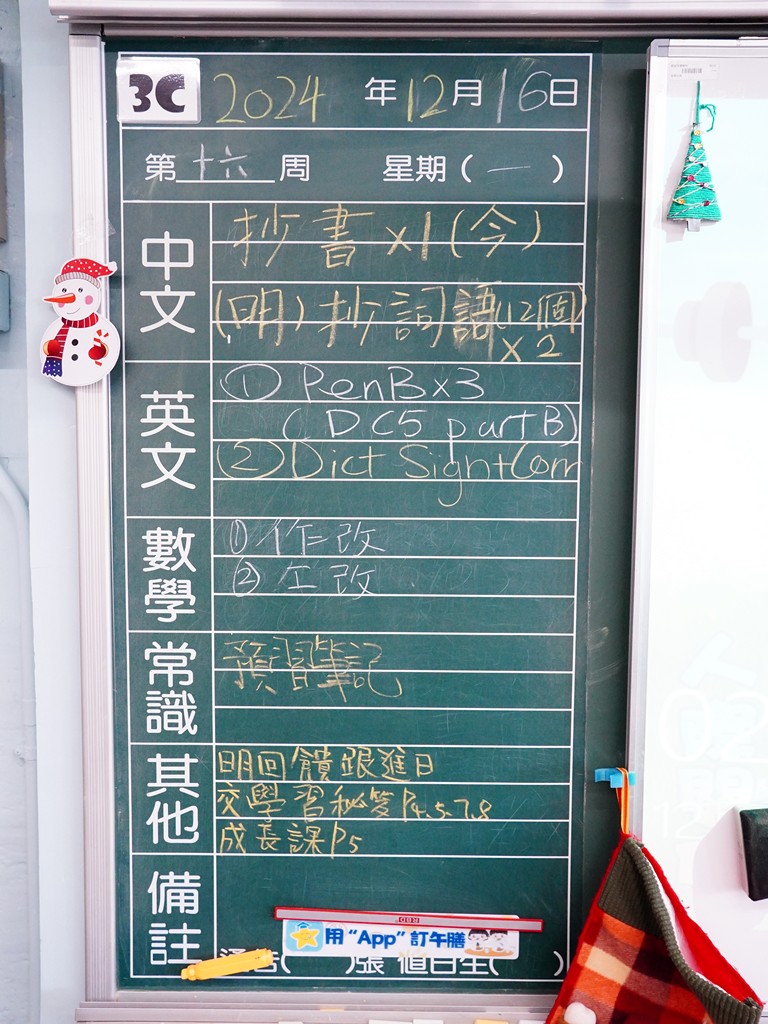 3C 2024 年 12 月 16 日
第 十六 周 星期 ( 一 )
中文
抄書 x1 (今)
(明) 抄詞語(12個)
x 2
英文
① PenB x3
(DC5 part B)
② Dict Sign+Corr
數學
① 作改
② 工改
常識
預習筆記
其他
明回饋跟進日
交學習秘笈 P4.5.7.8
成長課 P5
備註
用 "App" 訂午膳
通告( )張 值日生( )